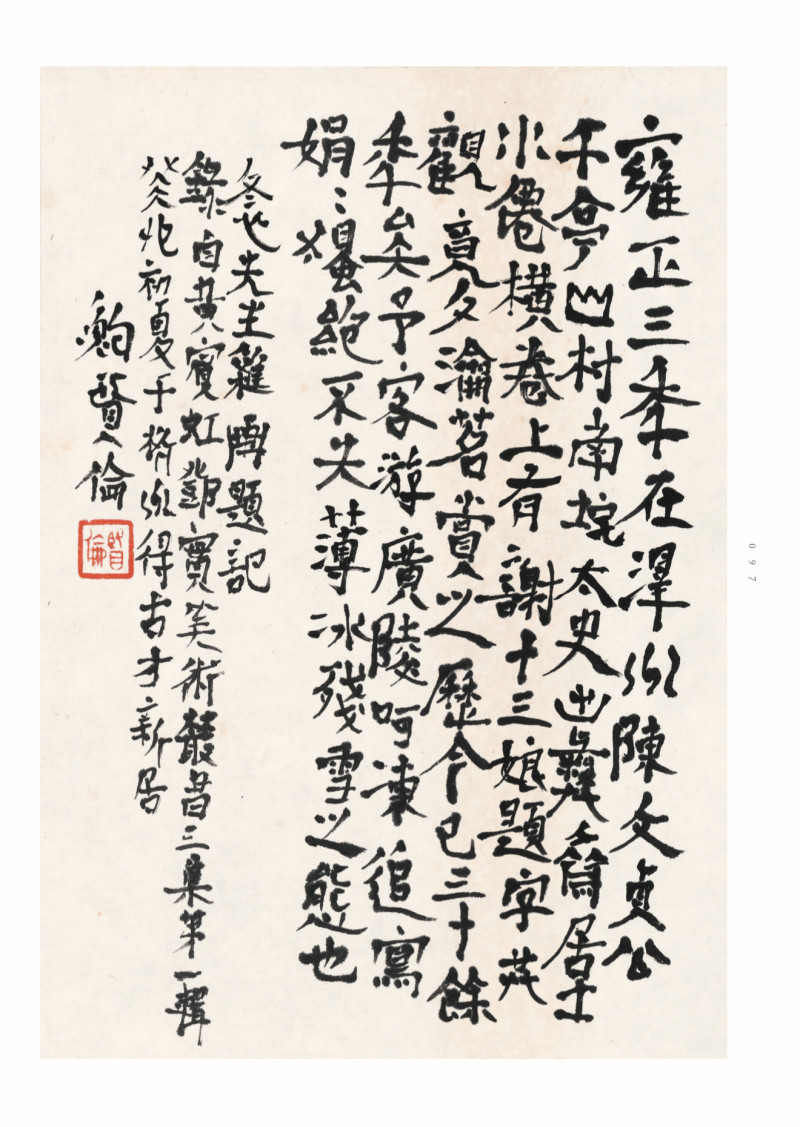 雍正三年在澤州陳文貞公
午亭山村南垞太史出彝齋居士
水僊橫卷上有謝十三娘題字共
觀竟夕瀹茗賞之歷今已三十餘
年矣予客游廣陵呵凍追寫
娟娟獨絕不失薄冰殘雪之態也
冬心先生雜畫題記
錄自黃賓虹鄧實美術叢書三集第一輯
癸卯初夏于揚州得古才新居
賢倫
賢倫
097